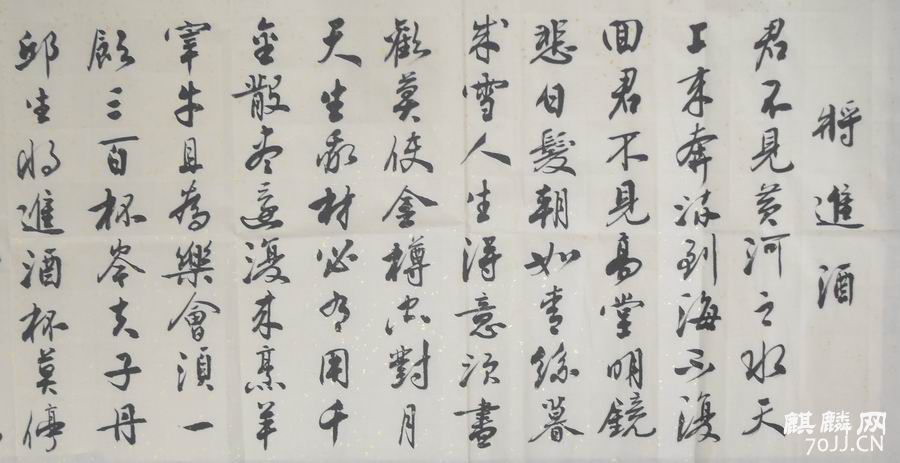 將進酒
君不見黄河之水天
上来奔流到海不復
回君不見高堂明鏡
悲白髮朝如青絲暮
成雪人生得意須盡
歡莫使金樽空對月
天生我材必有用千
金散尽還復来烹羊
宰牛且為樂會須一
飲三百杯岑夫子丹
邱生将進酒杯莫停
麒麟网
70JJ.CN